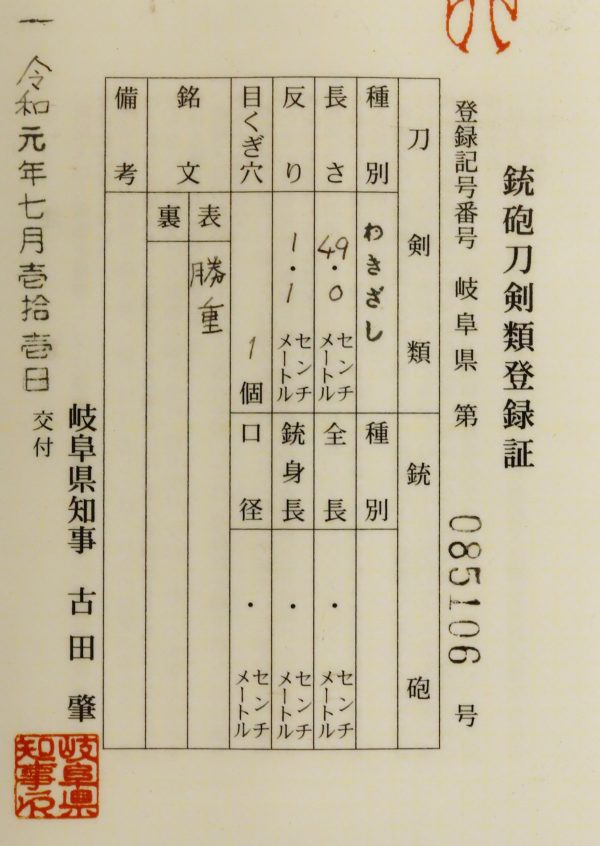 銃砲刀剣類登録証
登録記号番号 岐阜県 第 085106 号
刀剣類
銃砲
種別 わきざし
長さ 49.0 センチメートル
反り 1.1 センチメートル
目くぎ穴 1個
銘文
表 勝重
裏
備考
種別
全長 ・ センチメートル
銃身長 ・ センチメートル
口径 ・ センチメートル
令和元年七月壱拾壱日 交付
岐阜県知事 古田 肇
岐阜県知事之印